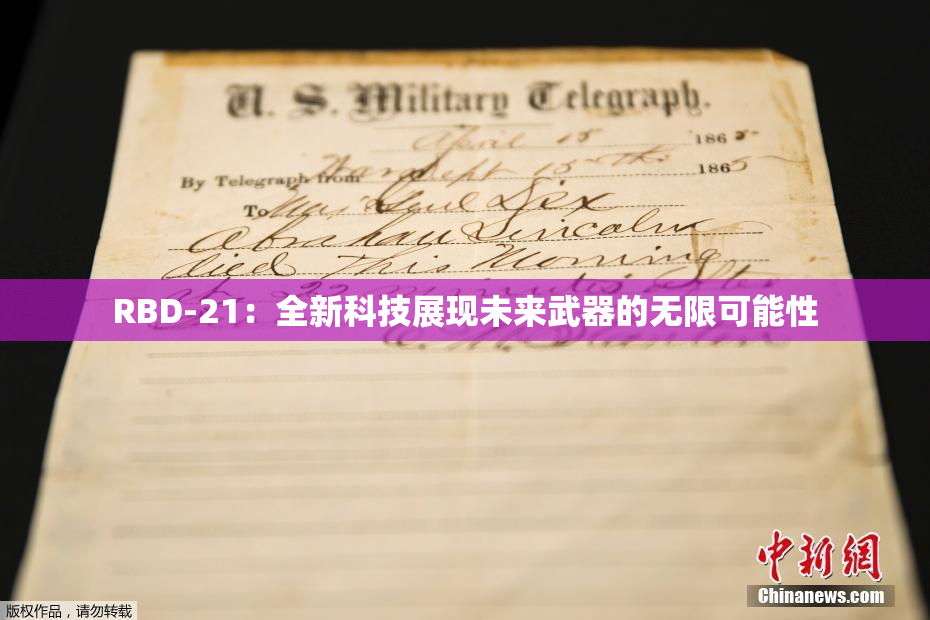 U. S. Military Telegraph.
April 15 1865
By Telegraph from War Dept 15th 1865
To Maj Genl Dix
Abraham Lincoln
died This Morning
at 22 minutes after
RBD-21：全新科技展现未来武器的无限可能性
中新網
Chinanews.com
版权作品，请勿转载